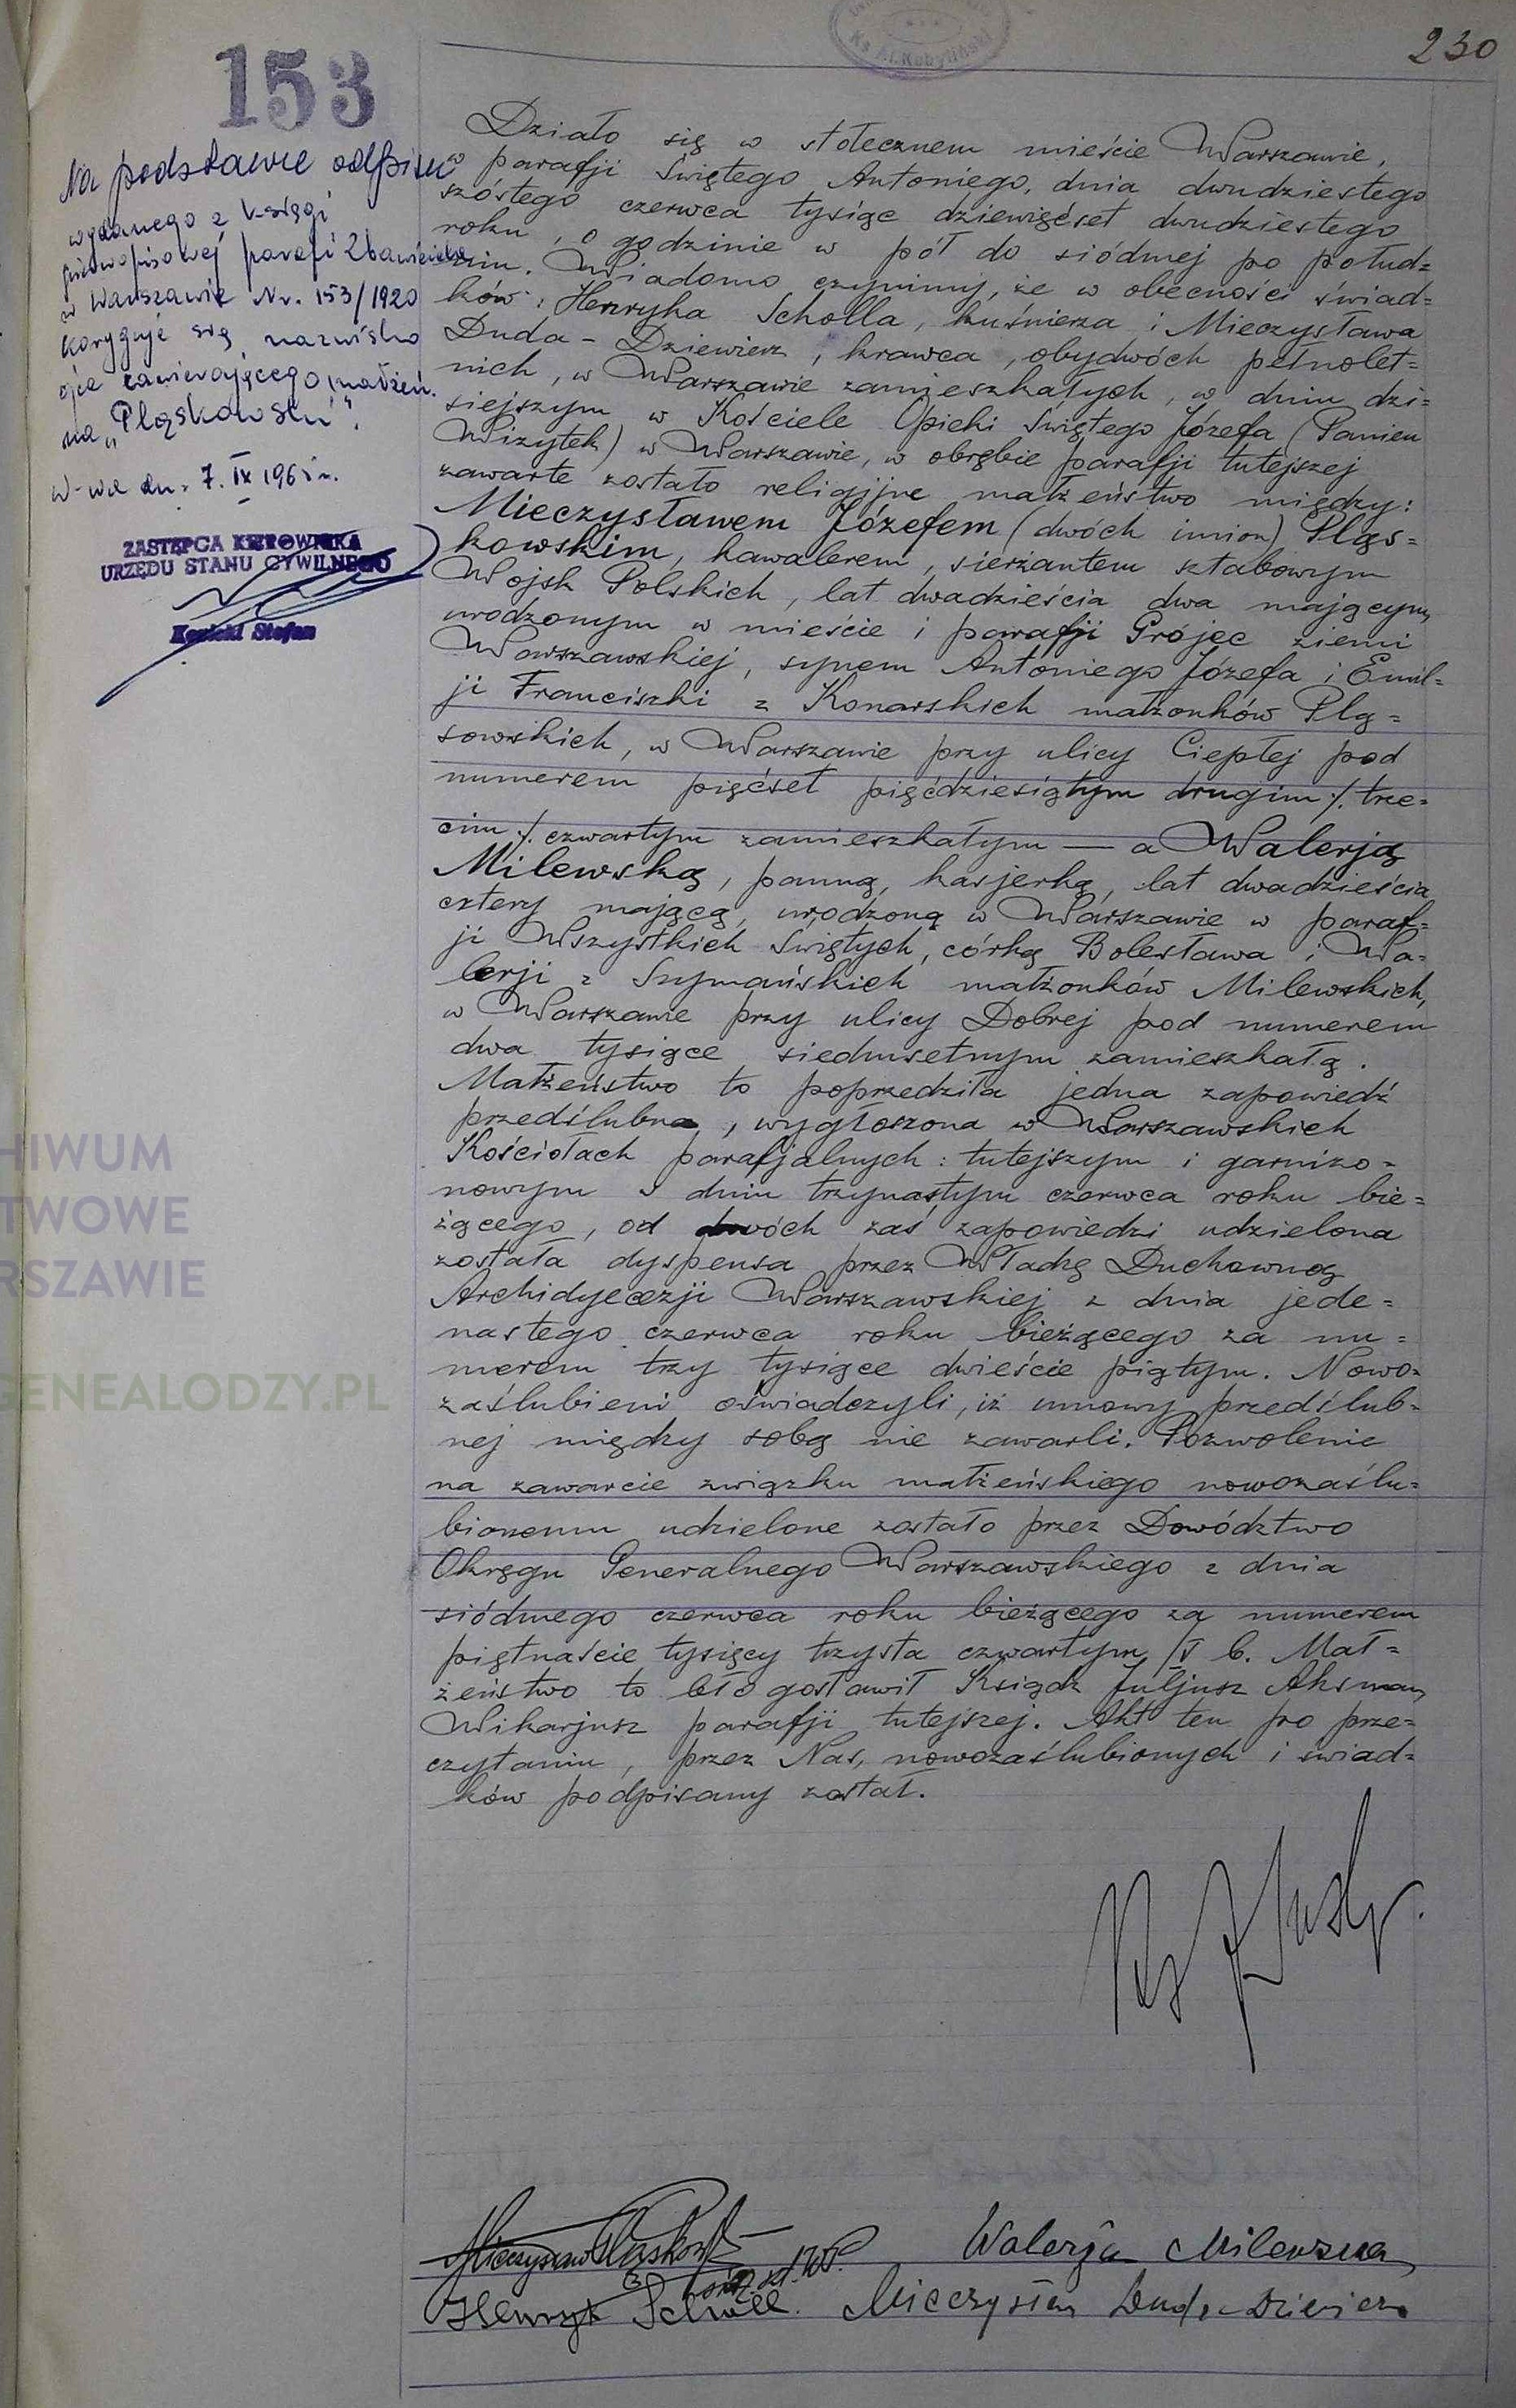 230
Ks. Al. Kobyliński
153
Na podstawie odpisu
wydanego z księgi
pierwopisowej parafi Zbawiciela
w Warszawie Nr. 153/1920
koryguje się nazwisko
ojca zawierającego małżeń.
na „Pląskowski".
W-wa dn. 7. IX 1965 r.
ZASTĘPCA KIEROWNIKA
URZĘDU STANU CYWILNEGO
Stefan
Działo się w stołecznem mieście Warszawie,
w parafji Świętego Antoniego, dnia dwudziestego
szóstego czerwca tysiąc dziewięćset dwudziestego
roku, o godzinie w pół do siódmej po połud=
niu. Wiadomo czynimy, że w obecności świad=
ków: Henryka Scholla, kuśnierza i Mieczysława
Duda-Dziewierz, krawca, obydwóch pełnolet=
nich, w Warszawie zamieszkałych, w dniu dzi=
siejszym w Kościele Opieki Świętego Józefa (Panien
Wizytek) w Warszawie, w obrębie parafji tutejszej
zawarte zostało religijne małżeństwo między:
Mieczysławem Józefem (dwóch imion) Pląs=
kowskim, kawalerem, sierżantem sztabowym
Wojsk Polskich, lat dwadzieścia dwa mającym,
urodzonym w mieście i parafji Grójec ziemi
Warszawskiej, synem Antoniego Józefa i Emil=
ji Franciszki z Konarskich małżonków Plą=
sowskich, w Warszawie przy ulicy Ciepłej pod
numerem pięćset pięćdziesiątym drugim ./. trze=
cim ./. czwartym zamieszkałym — a Walerją
Milewską, panną, kasjerką, lat dwadzieścia
cztery mającą, urodzoną w Warszawie w paraf=
ji Wszystkich Świętych, córką Bolesława i Wa=
lerji z Szymańskich małżonków Milewskich,
w Warszawie przy ulicy Dobrej pod numerem
dwa tysiące siedmsetnym zamieszkałą.
Małżeństwo to poprzedziła jedna zapowiedź
przedślubna, wygłoszona w Warszawskich
Kościołach parafjalnych: tutejszym i garnizo=
nowym w dniu trzynastym czerwca roku bie=
żącego, od dwóch zaś zapowiedzi udzielona
została dyspensa przez Władzę Duchowną
Archidyecezji Warszawskiej z dnia jede=
nastego czerwca roku bieżącego za nu=
merem trzy tysiące dwieście piątym. Nowo=
zaślubieni oświadczyli, iż umowy przedślub=
nej między sobą nie zawarli. Pozwolenie
na zawarcie związku małżeńskiego nowozaślu=
bionemu udzielone zostało przez Dowództwo
Okręgu Generalnego Warszawskiego z dnia
siódmego czerwca roku bieżącego za numerem
piętnaście tysięcy trzysta czwartym /V b. Mał=
żeństwo to błogosławił Ksiądz Juljusz Aksman,
Wikarjusz parafji tutejszej. Akt ten po prze=
czytaniu, przez Nas, nowozaślubionych i świad=
ków podpisany został.
Mieczysław Pląskowski
sierż. szt. WP.
Walerja Milewska
Henryk Scholl.
Mieczysław Duda-Dziewierz
HIWUM
TWOWE
RSZAWIE
GENEALODZY.PL